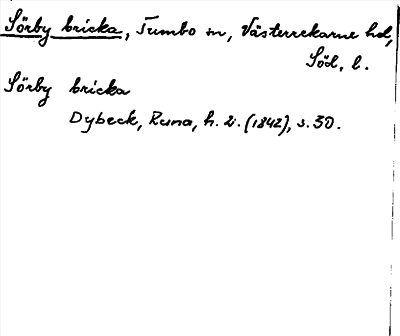 Sörby bricka, Tumbo sn, Västerrekarne hd,
Söd. l.
Sörby bricka
Dybeck, Runa, h. 2. (1842), s. 30.